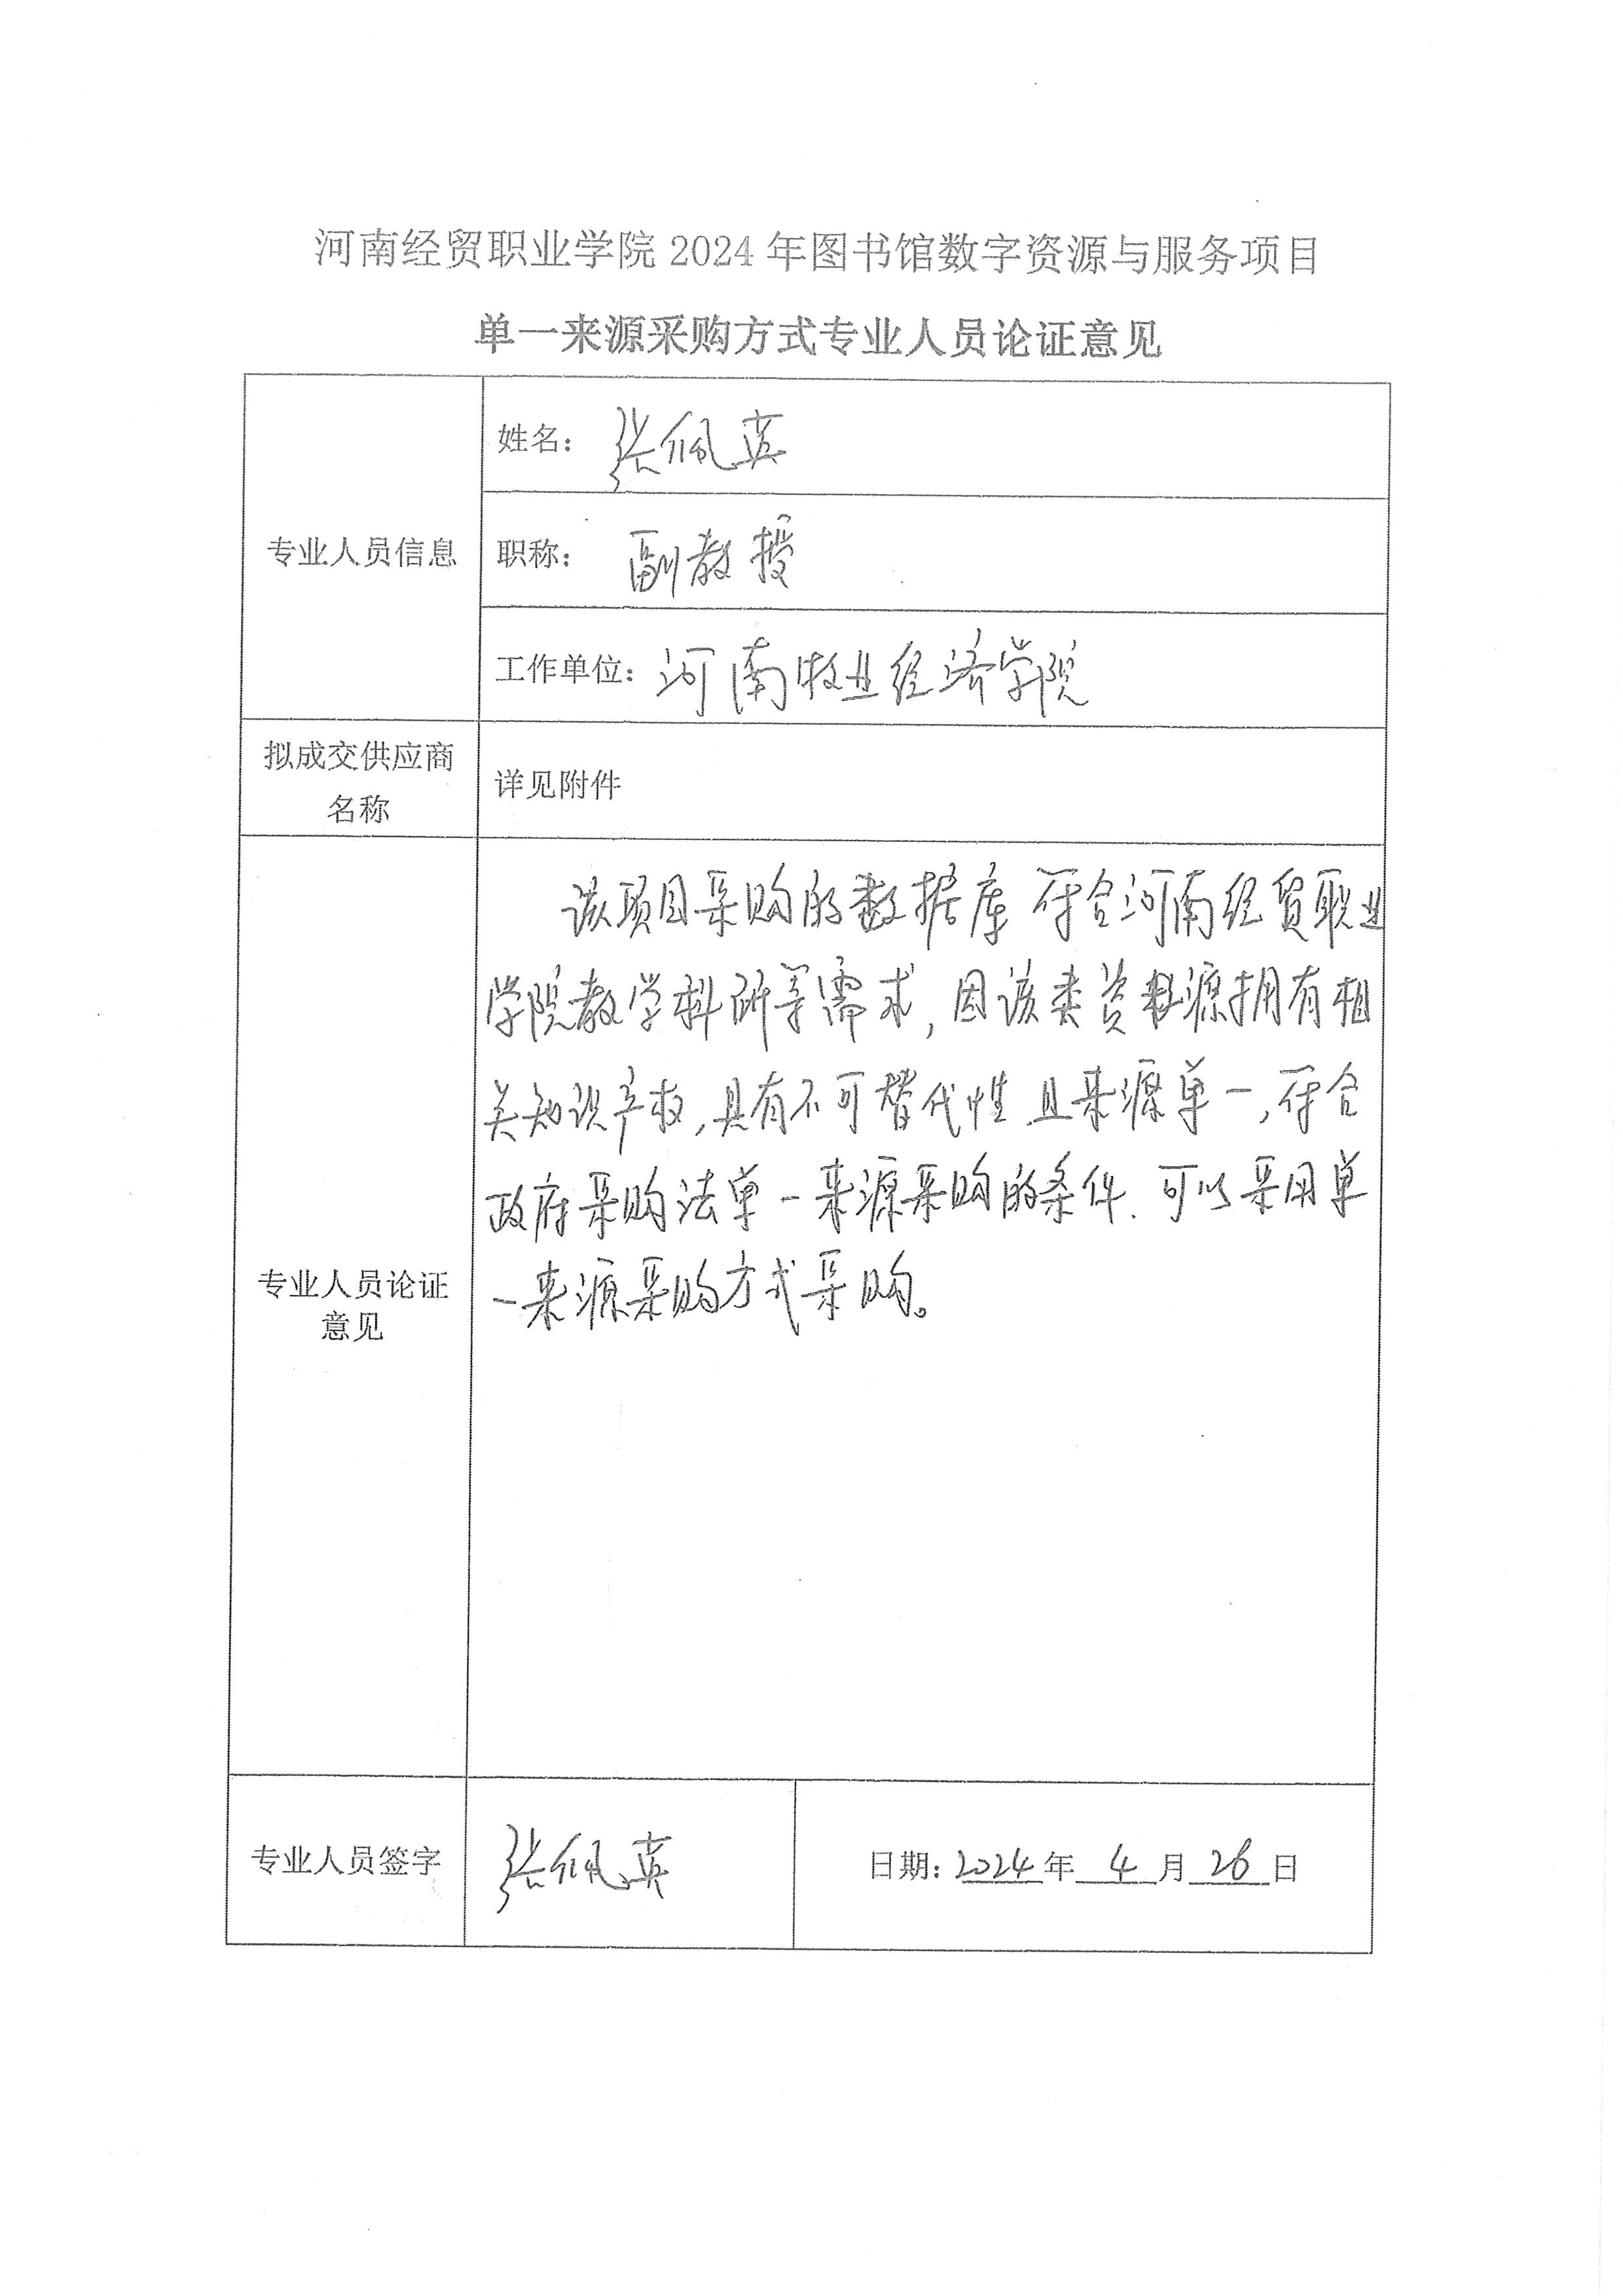 河南经贸职业学院 2024 年图书馆数字资源与服务项目
单一来源采购方式专业人员论证意见
专业人员信息
姓名：张佩英
职称：副教授
工作单位：河南牧业经济学院
拟成交供应商
名称
详见附件
专业人员论证
意见
该项目采购的数据库符合河南经贸职业
学院教学科研等需求，因该类资源拥有相
关知识产权，具有不可替代性且来源单一，符合
政府采购法单一来源采购的条件．可以采用单
一来源采购方式采购。
专业人员签字
张佩英
日期：2024年 4 月 26 日